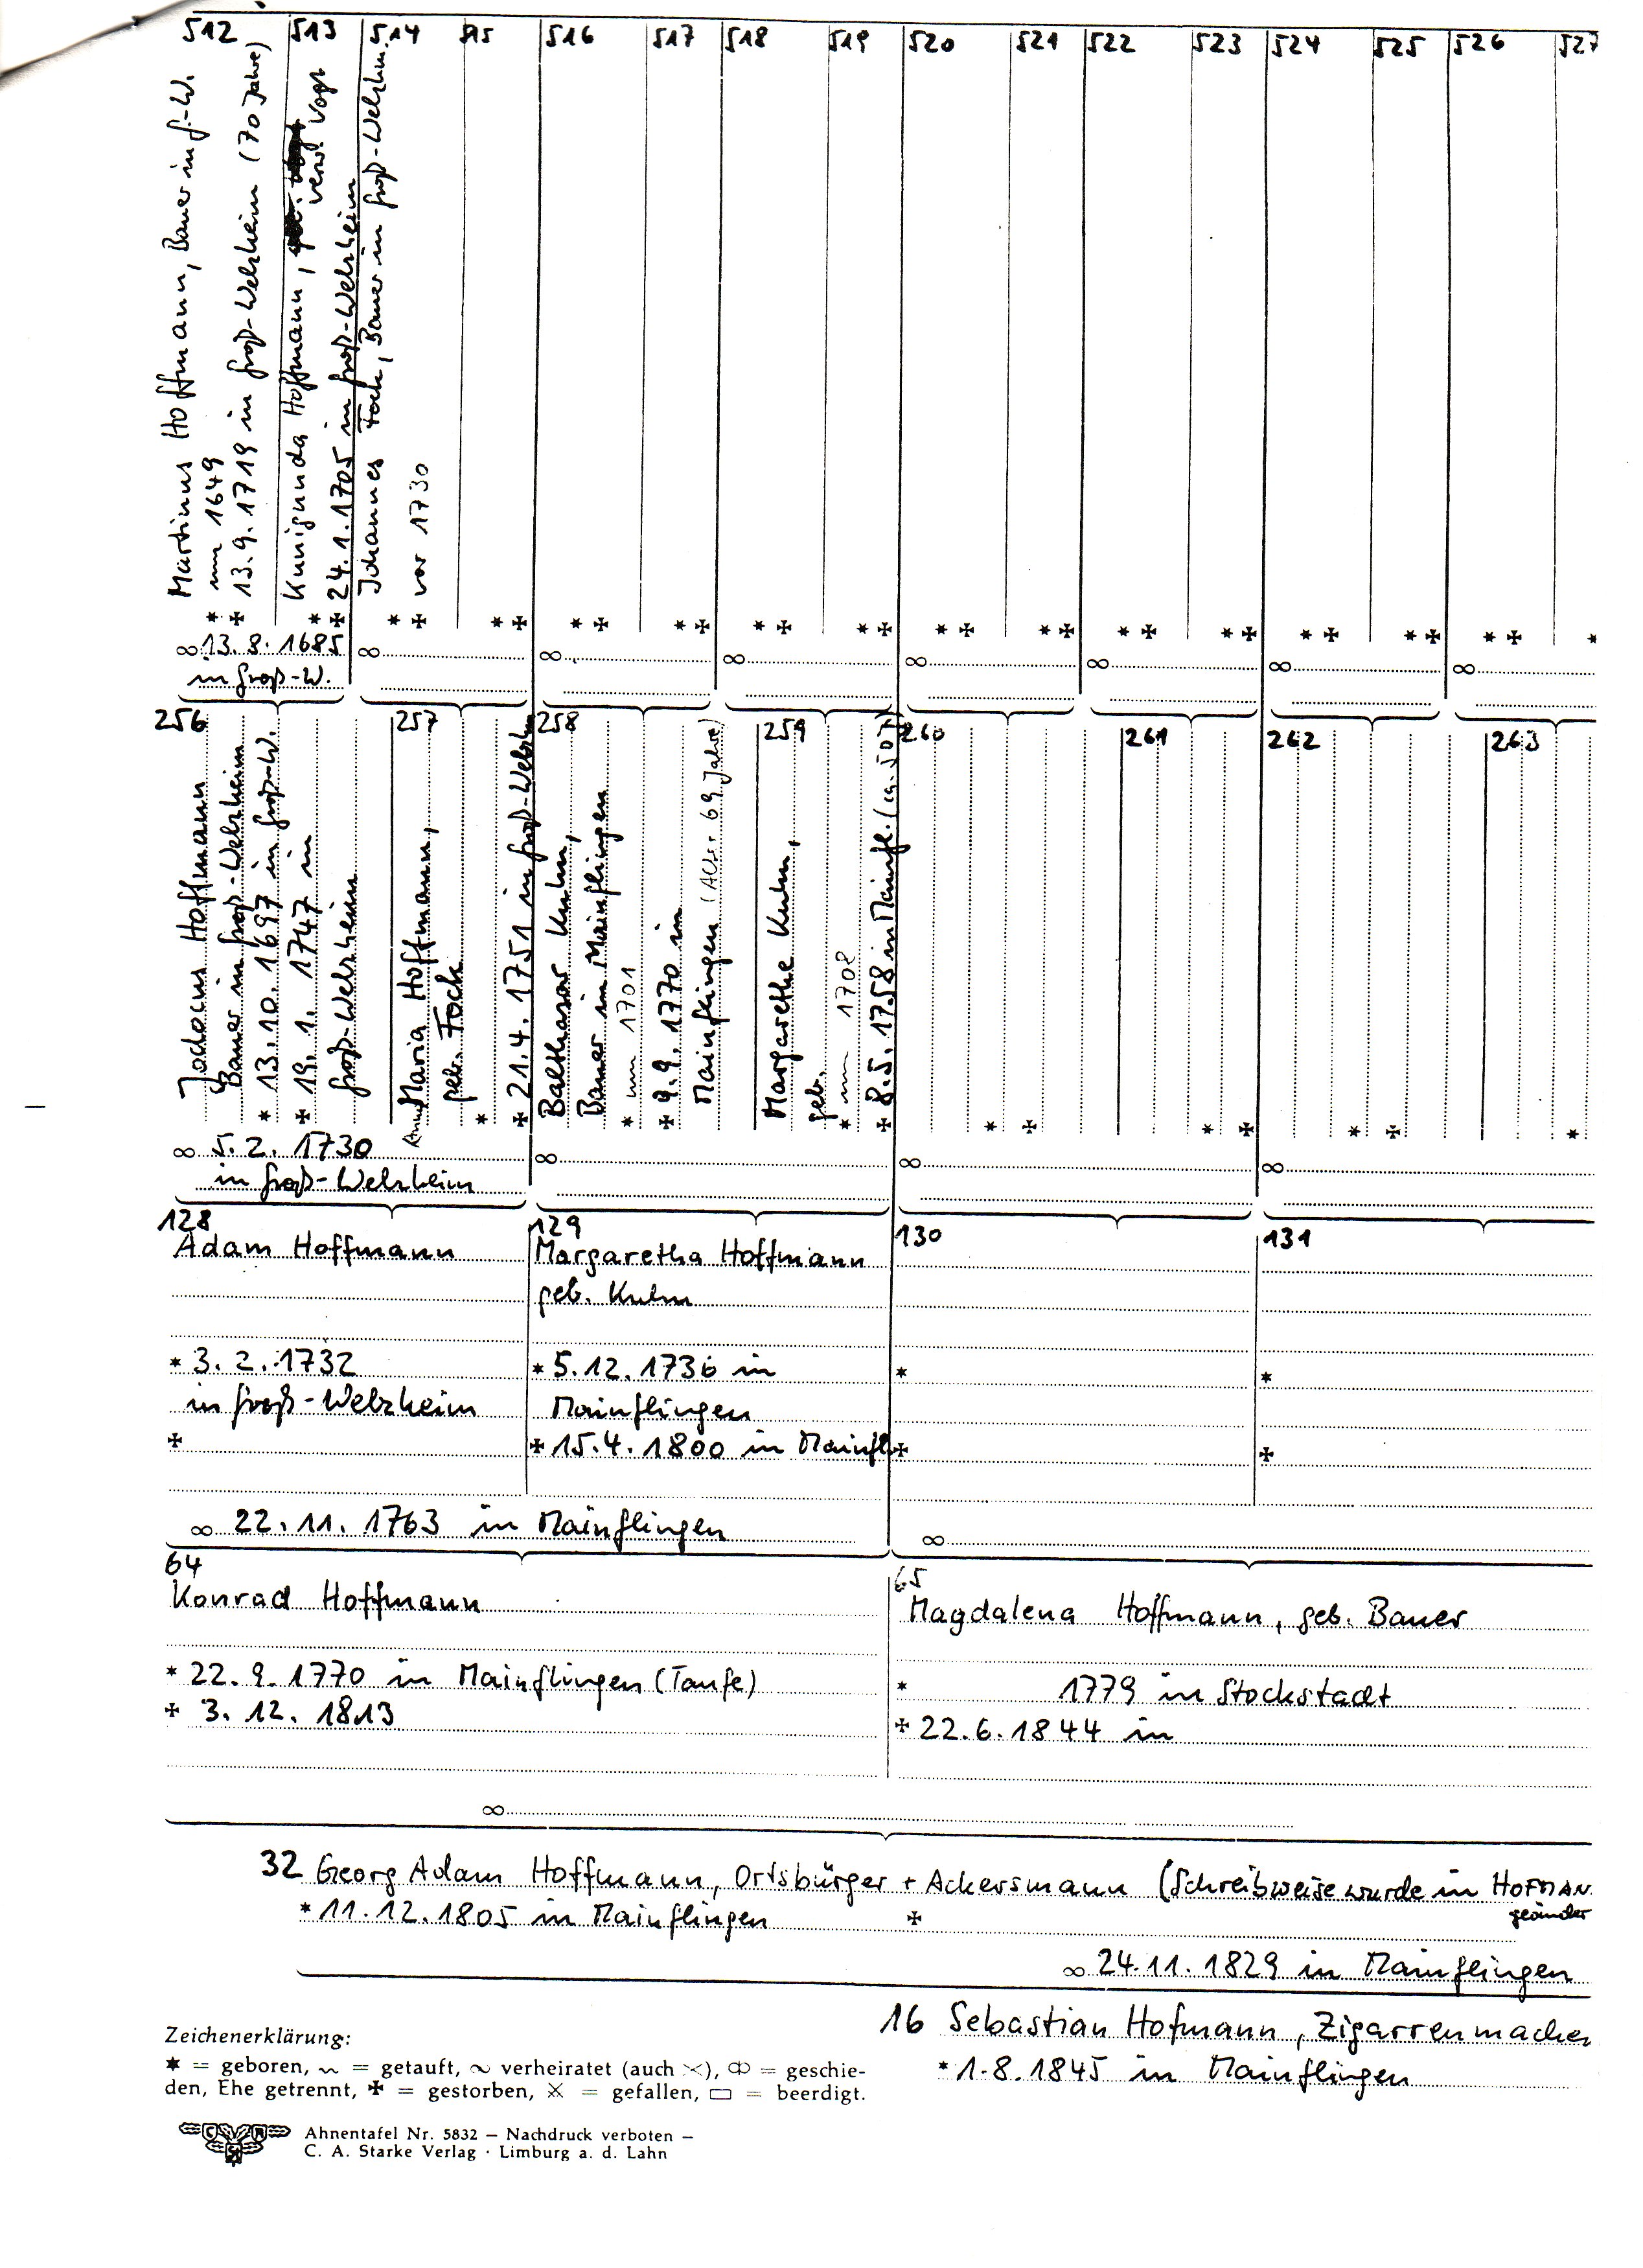 512 513 514 515 516 517 518 519 520 521 522 523 524 525 526 527
Martinus Hoffmann, Bauer in G.-W.
* um 1649
✠ 13.9.1719 in Groß-Welzheim (70 Jahre)
Kunigunda Hoffmann, verw. Vogt
*
✠ 24.1.1705 in Groß-Welzheim
Johannes Fock, Bauer in Groß-Welzheim
*
✠ vor 1730
* ✠ * ✠ * ✠ * ✠ * ✠ * ✠ * ✠ * ✠ * ✠ * ✠ * ✠ * ✠ *
∞ 13.8.1685
in Groß-W.
∞ ∞ ∞ ∞ ∞ ∞ ∞
256 257 258 259 260 261 262 263
Jodocus Hoffmann
Bauer in Groß-Welzheim
* 13.10.1697 in Groß-W.
✠ 19.1.1747 in
Groß-Welzheim
Anna Maria Hoffmann,
geb. Fock
*
✠ 21.4.1751 in Groß-Welzhm
Balthasar Kuhn,
Bauer in Mainflingen
* um 1701
✠ 9.9.1770 in
Mainflingen (Alter 69 Jahre)
Margarethe Kuhn,
geb.
* um 1708
✠ 8.5.1758 in Mainfl. (ca. 50 J)
* ✠ * ✠ * ✠ *
∞ 5.2.1730
in Groß-Welzheim
∞ ∞ ∞
128 129 130 131
Adam Hoffmann
* 3.2.1732
in Groß-Welzheim
✠
Margaretha Hoffmann
geb. Kuhn
* 5.12.1736 in
Mainflingen
✠ 15.4.1800 in Mainfl.
*
✠
*
✠
∞ 22.11.1763 in Mainflingen
∞
64
Konrad Hoffmann
* 22.9.1770 in Mainflingen (Taufe)
✠ 3.12.1813
65
Magdalena Hoffmann, geb. Bauer
* 1779 in Stockstadt
✠ 22.6.1844 in
∞
32 Georg Adam Hoffmann, Ortsbürger + Ackersmann (Schreibweise wurde in HOFMAN
geänder
* 11.12.1805 in Mainflingen ✠
∞ 24.11.1829 in Mainflingen
16 Sebastian Hofmann, Zigarrenmacher
* 1.8.1845 in Mainflingen
Zeichenerklärung:
✶ = geboren, ~ = getauft, ∞ verheiratet (auch ⚮), ⚮ = geschie-
den, Ehe getrennt, ✠ = gestorben, ⚔ = gefallen, ▭ = beerdigt.
Ahnentafel Nr. 5832 – Nachdruck verboten –
C. A. Starke Verlag · Limburg a. d. Lahn